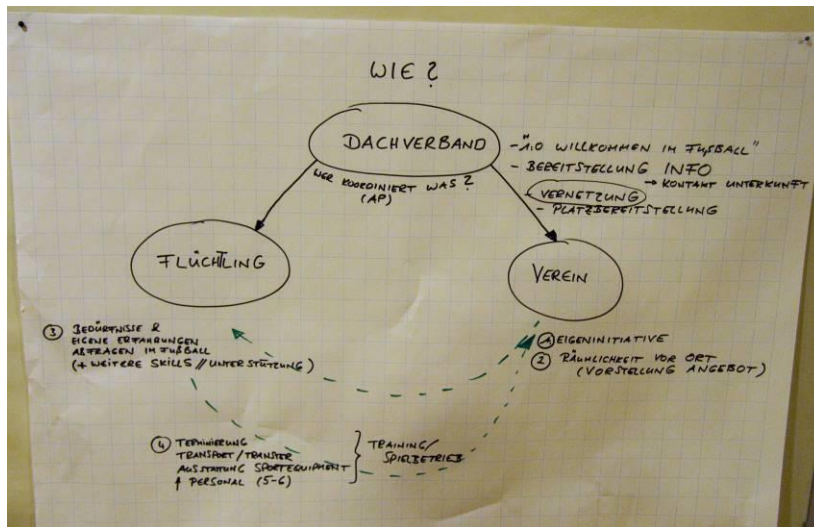 WIE?
DACHVERBAND
- "1:0 WILLKOMMEN IM FUßBALL"
- BEREITSTELLUNG INFO
- VERNETZUNG → KONTAKT UNTERKUNFT
- PLATZBEREITSTELLUNG
WER KOORDINIERT WAS?
(AP)
FLÜCHTLING
VEREIN
③ BEDÜRFNISSE &
EIGENE ERFAHRUNGEN
ABFRAGEN IM FUßBALL
(+ WEITERE SKILLS // UNTERSTÜTZUNG)
① EIGENINITIATIVE
② RÄUMLICHKEIT VOR ORT
(VORSTELLUNG ANGEBOT)
④ TERMINIERUNG
TRANSPORT/TRANSFER
AUSSTATTUNG SPORTEQUIPMENT
↑ PERSONAL (5-6)
} TRAINING/
SPIELBETRIEB